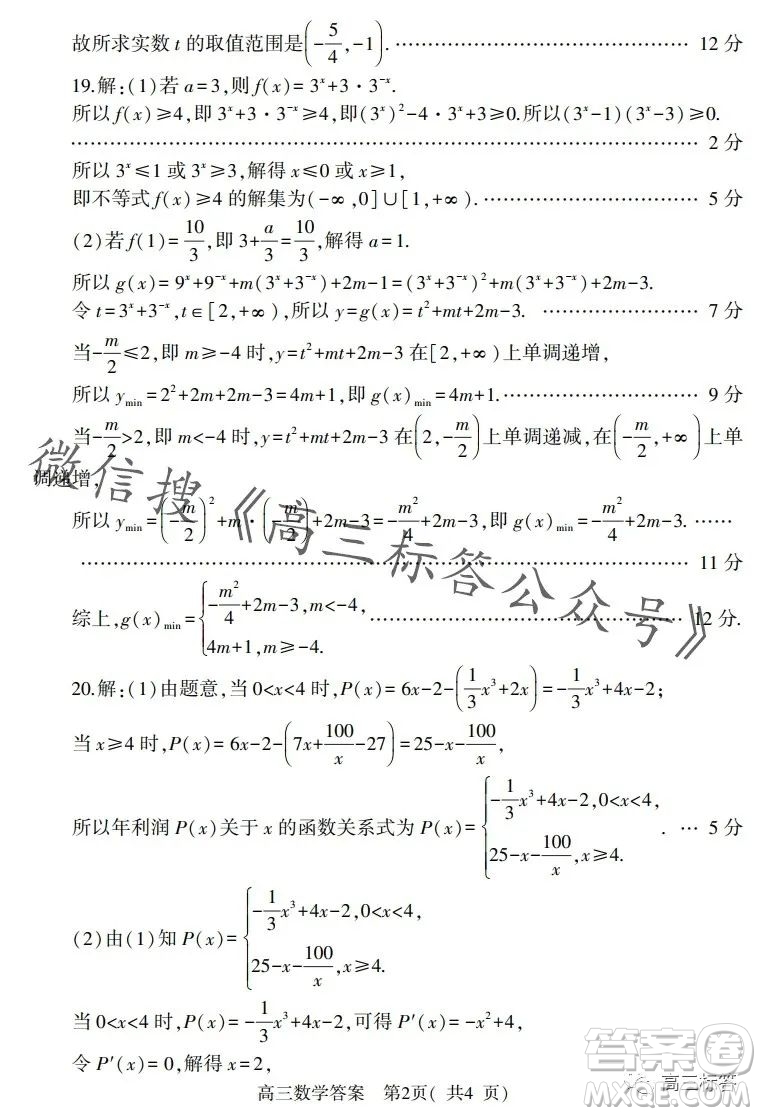 故所求实数 t 的取值范围是(-5/4,-1). …… 12 分
19.解:(1)若 a=3,则 f(x)=3^x+3·3^{-x}.
所以 f(x)≥4,即 3^x+3·3^{-x}≥4,即(3^x)^2-4·3^x+3≥0.所以(3^x-1)(3^x-3)≥0.
…… 2 分
所以 3^x≤1 或 3^x≥3,解得 x≤0 或 x≥1,
即不等式 f(x)≥4 的解集为(-∞,0]∪[1,+∞). …… 5 分
(2)若 f(1)=10/3,即 3+a/3=10/3,解得 a=1.
所以 g(x)=9^x+9^{-x}+m(3^x+3^{-x})+2m-1=(3^x+3^{-x})^2+m(3^x+3^{-x})+2m-3.
令 t=3^x+3^{-x},t∈[2,+∞),所以 y=g(x)=t^2+mt+2m-3. …… 7 分
当-m/2≤2,即 m≥-4 时,y=t^2+mt+2m-3 在[2,+∞)上单调递增,
所以 y_min=2^2+2m+2m-3=4m+1,即 g(x)_min=4m+1. …… 9 分
当-m/2>2,即 m<-4 时,y=t^2+mt+2m-3 在(2,-m/2)上单调递减,在(-m/2,+∞)上单
调递增,
所以 y_min=(-m/2)^2+m·(-m/2)+2m-3=-m^2/4+2m-3,即 g(x)_min=-m^2/4+2m-3. ……
…… 11 分
综上,g(x)_min={-m^2/4+2m-3,m<-4, 4m+1,m≥-4. …… 12 分.
20.解:(1)由题意,当 0<x<4 时,P(x)=6x-2-(1/3x^3+2x)=-1/3x^3+4x-2;
当 x≥4 时,P(x)=6x-2-(7x+100/x-27)=25-x-100/x,
所以年利润 P(x)关于 x 的函数关系式为 P(x)={-1/3x^3+4x-2,0<x<4, 25-x-100/x,x≥4. . … 5 分
(2)由(1)知 P(x)={-1/3x^3+4x-2,0<x<4, 25-x-100/x,x≥4.
当 0<x<4 时,P(x)=-1/3x^3+4x-2,可得 P′(x)=-x^2+4,
令 P′(x)=0,解得 x=2,
高三数学答案 第2页( 共4 页)
微信搜《高三标答公众号》
答案圈
高三标答
MXQE.COM